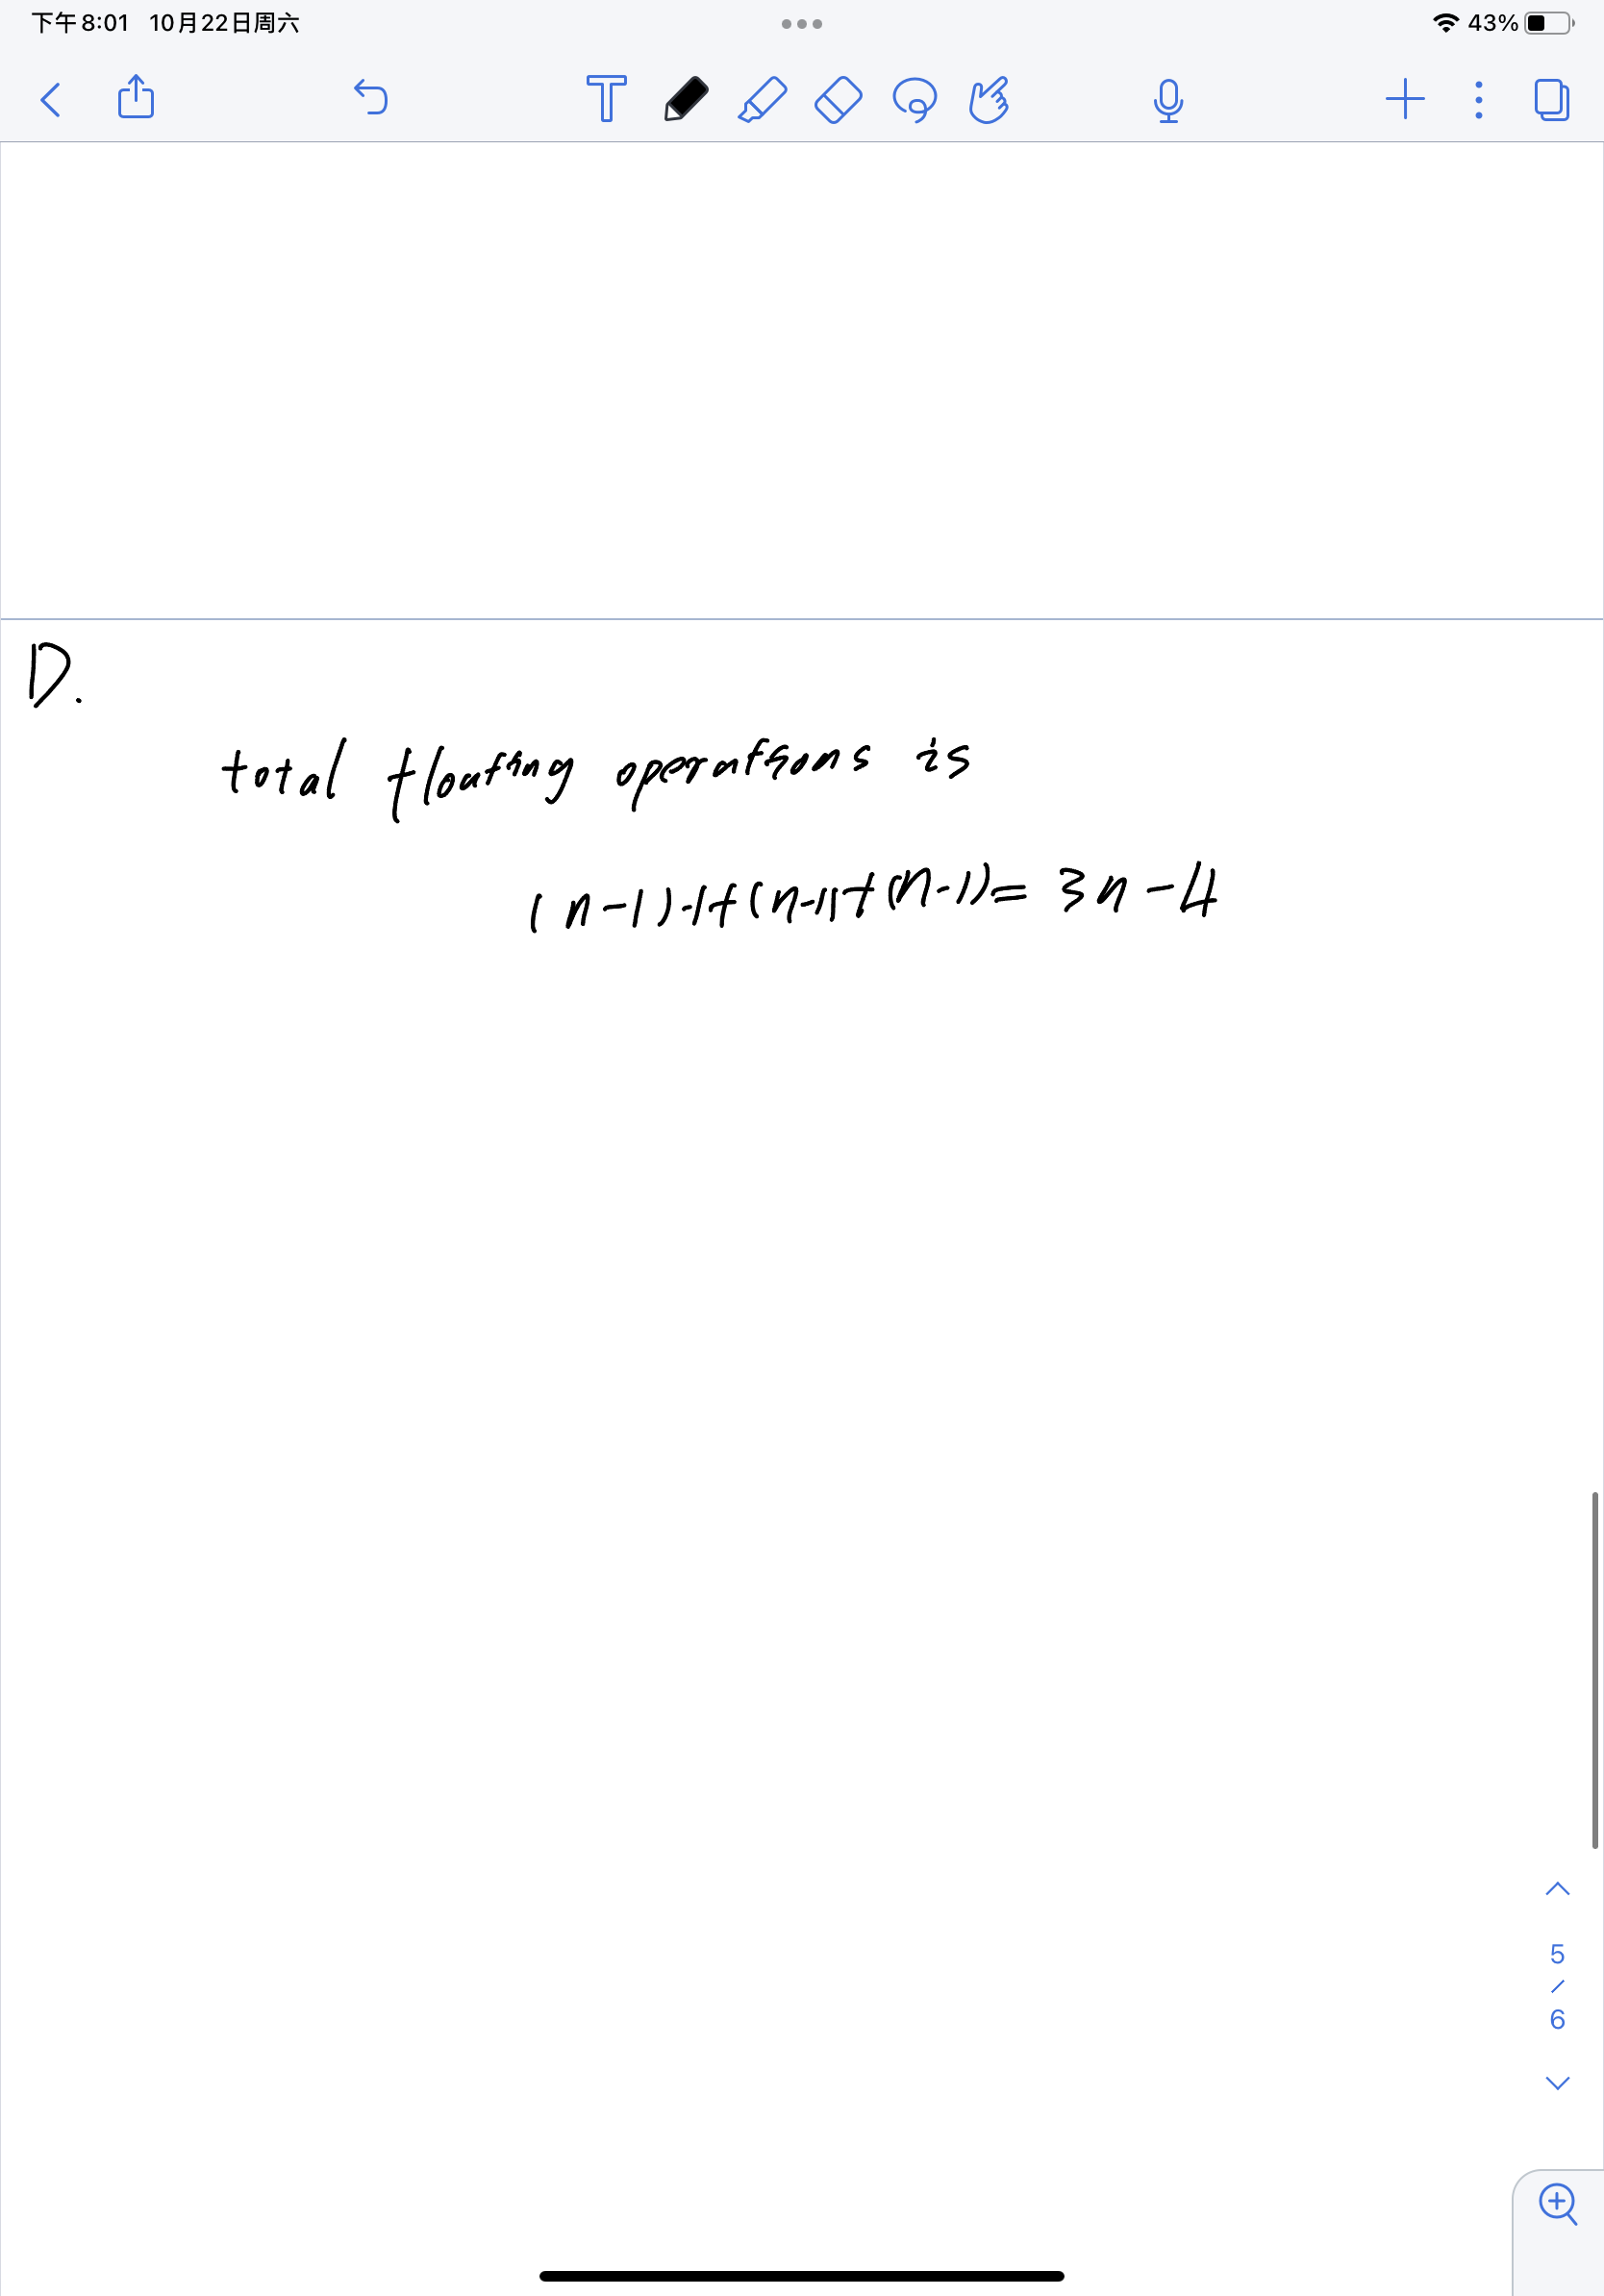 下午8:01 10月22日周六 43%
D.
total floating operations is
(n-1)-1+(n-1)+(n-1)= 3n-4
5
/
6